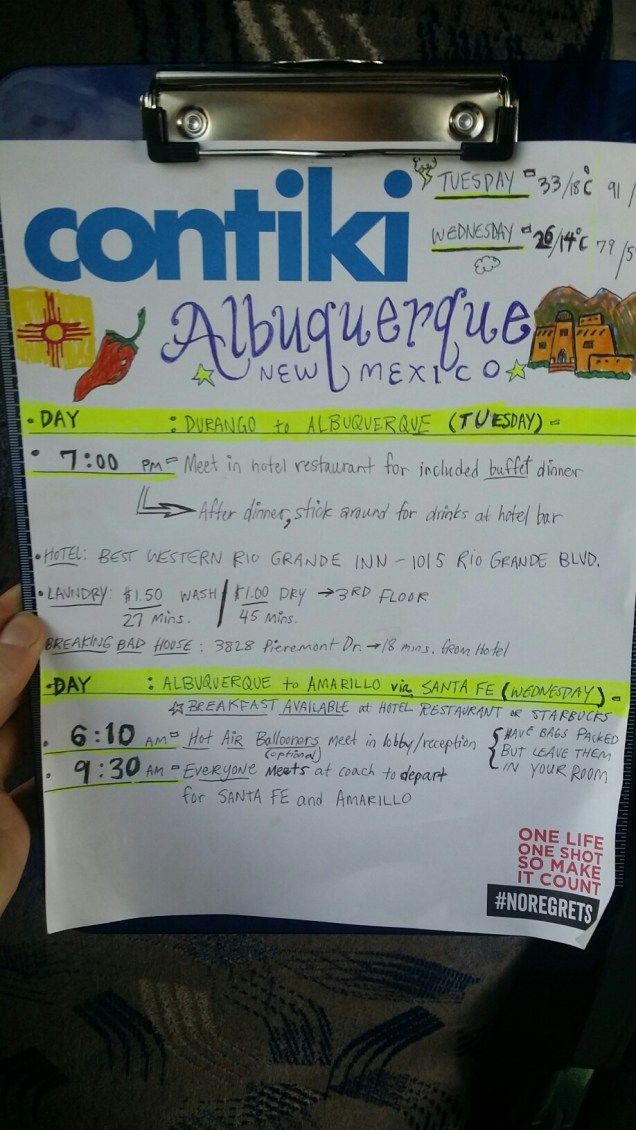 contiki
TUESDAY - 33/18°C 91/
WEDNESDAY - 26/14°C 79/5
Albuquerque
NEW MEXICO
• DAY : DURANGO to ALBUQUERQUE (TUESDAY) -
• 7:00 PM - Meet in hotel restaurant for included buffet dinner
After dinner, stick around for drinks at hotel bar
• HOTEL: BEST WESTERN RIO GRANDE INN - 1015 RIO GRANDE BLVD.
• LAUNDRY: $1.50 WASH / $1.00 DRY → 3RD FLOOR
27 mins. 45 mins.
BREAKING BAD HOUSE: 3828 Pieremont Dr. → 18 mins. from Hotel
• DAY : ALBUQUERQUE to AMARILLO via SANTA FE (WEDNESDAY) -
☆ BREAKFAST AVAILABLE at HOTEL RESTAURANT or STARBUCKS
• 6:10 AM - Hot Air Ballooners meet in lobby/reception
(optional)
{ HAVE BAGS PACKED
BUT LEAVE THEM
IN YOUR ROOM
• 9:30 AM - EVERYONE MEETS at coach to depart
for SANTA FE and AMARILLO
ONE LIFE
ONE SHOT
SO MAKE
IT COUNT
#NOREGRETS